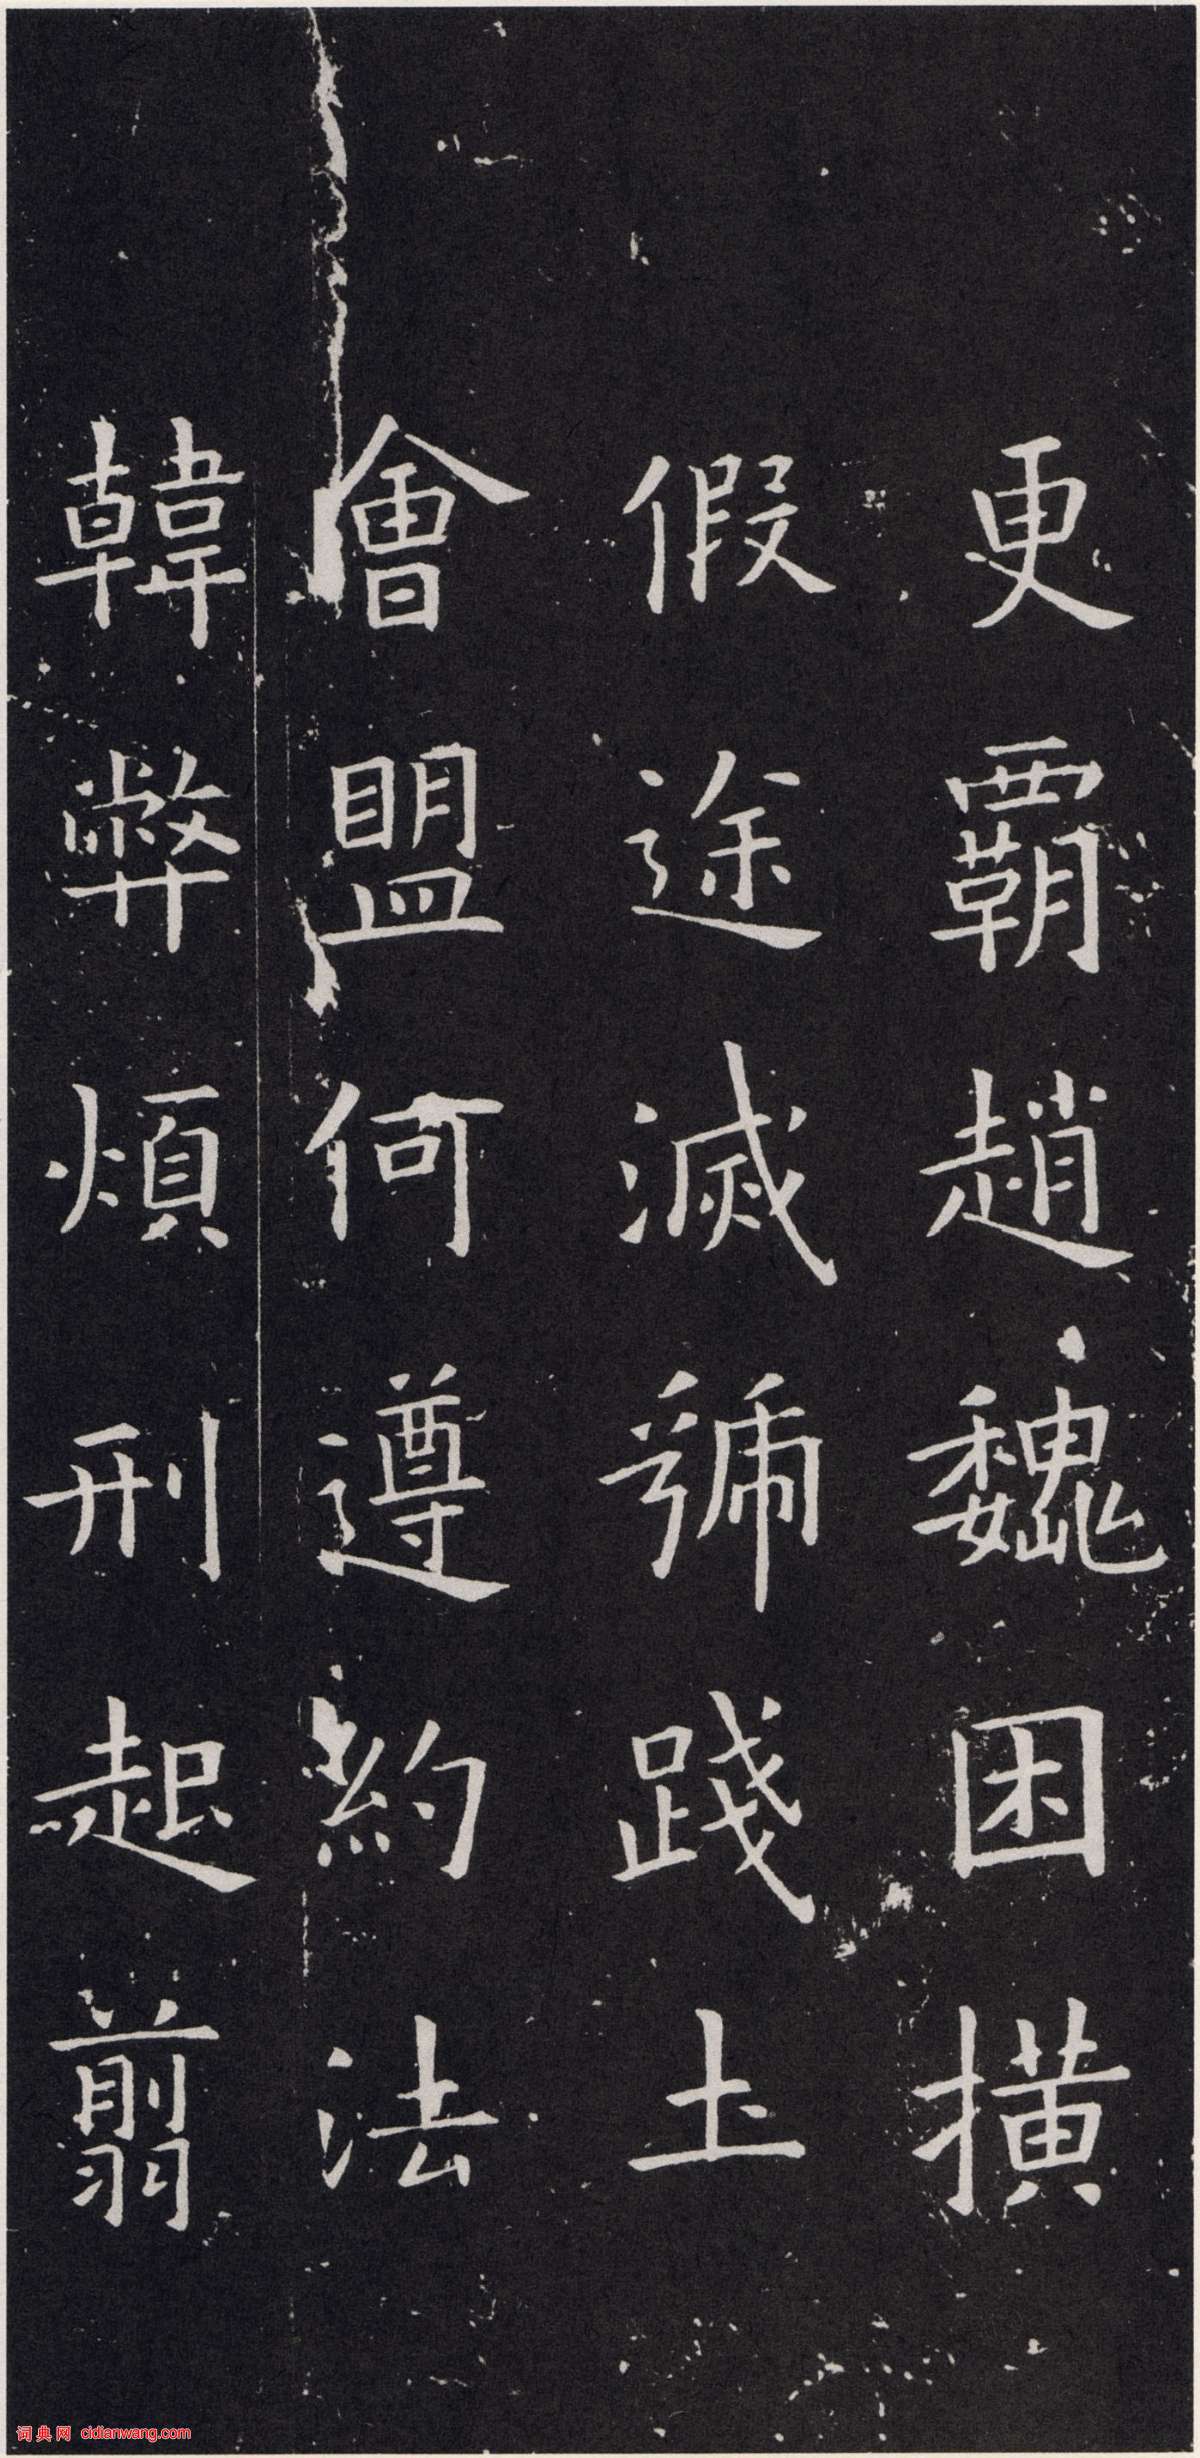 更霸趙魏困撗
假途滅號踐土
會盟何遵約法
韓弊煩刑起翦
词典网 cidianwang.com